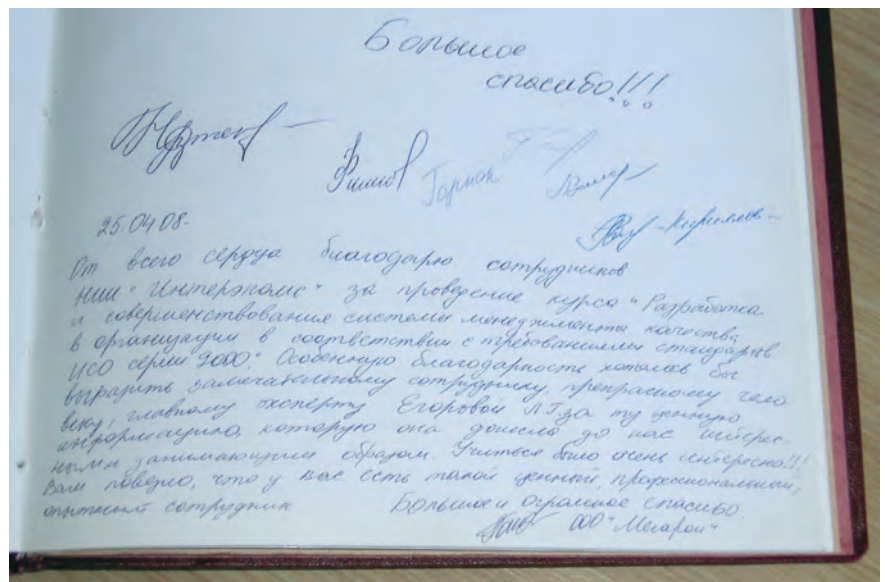 Большое
спасибо!!!
Филип
Гарнак
25.04.08.
-Кириллов-
От всего сердца благодарю сотрудников
НИИ "Интерэкомс" за проведение курса "Разработка
и совершенствование системы менеджмента качества
в организации в соответствии с требованиями стандартов
ИСО серии 9000". Особенную благодарность хотелось бы
выразить замечательному сотруднику, прекрасному чело
веку, главному эксперту Егоровой Л.Г. за ту ценную
информацию, которую она донесла до нас интерес-
ным занимающим образом. Учиться было очень интересно!!!
Вам повезло, что у вас есть такой ценный, профессиональный,
опытный сотрудник
Большое и огромное спасибо.
ООО "Мегарон"